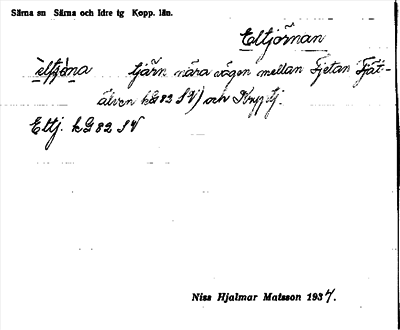 Särna sn Särna och Idre tg Kopp. län.
Eltjörnan
èltjò̀na tjärn nära vägen mellan Fjetan Fjät-
älven kG82 SV) och Knyptj.
Eltj. kG82 SV
Niss Hjalmar Matsson 1937.